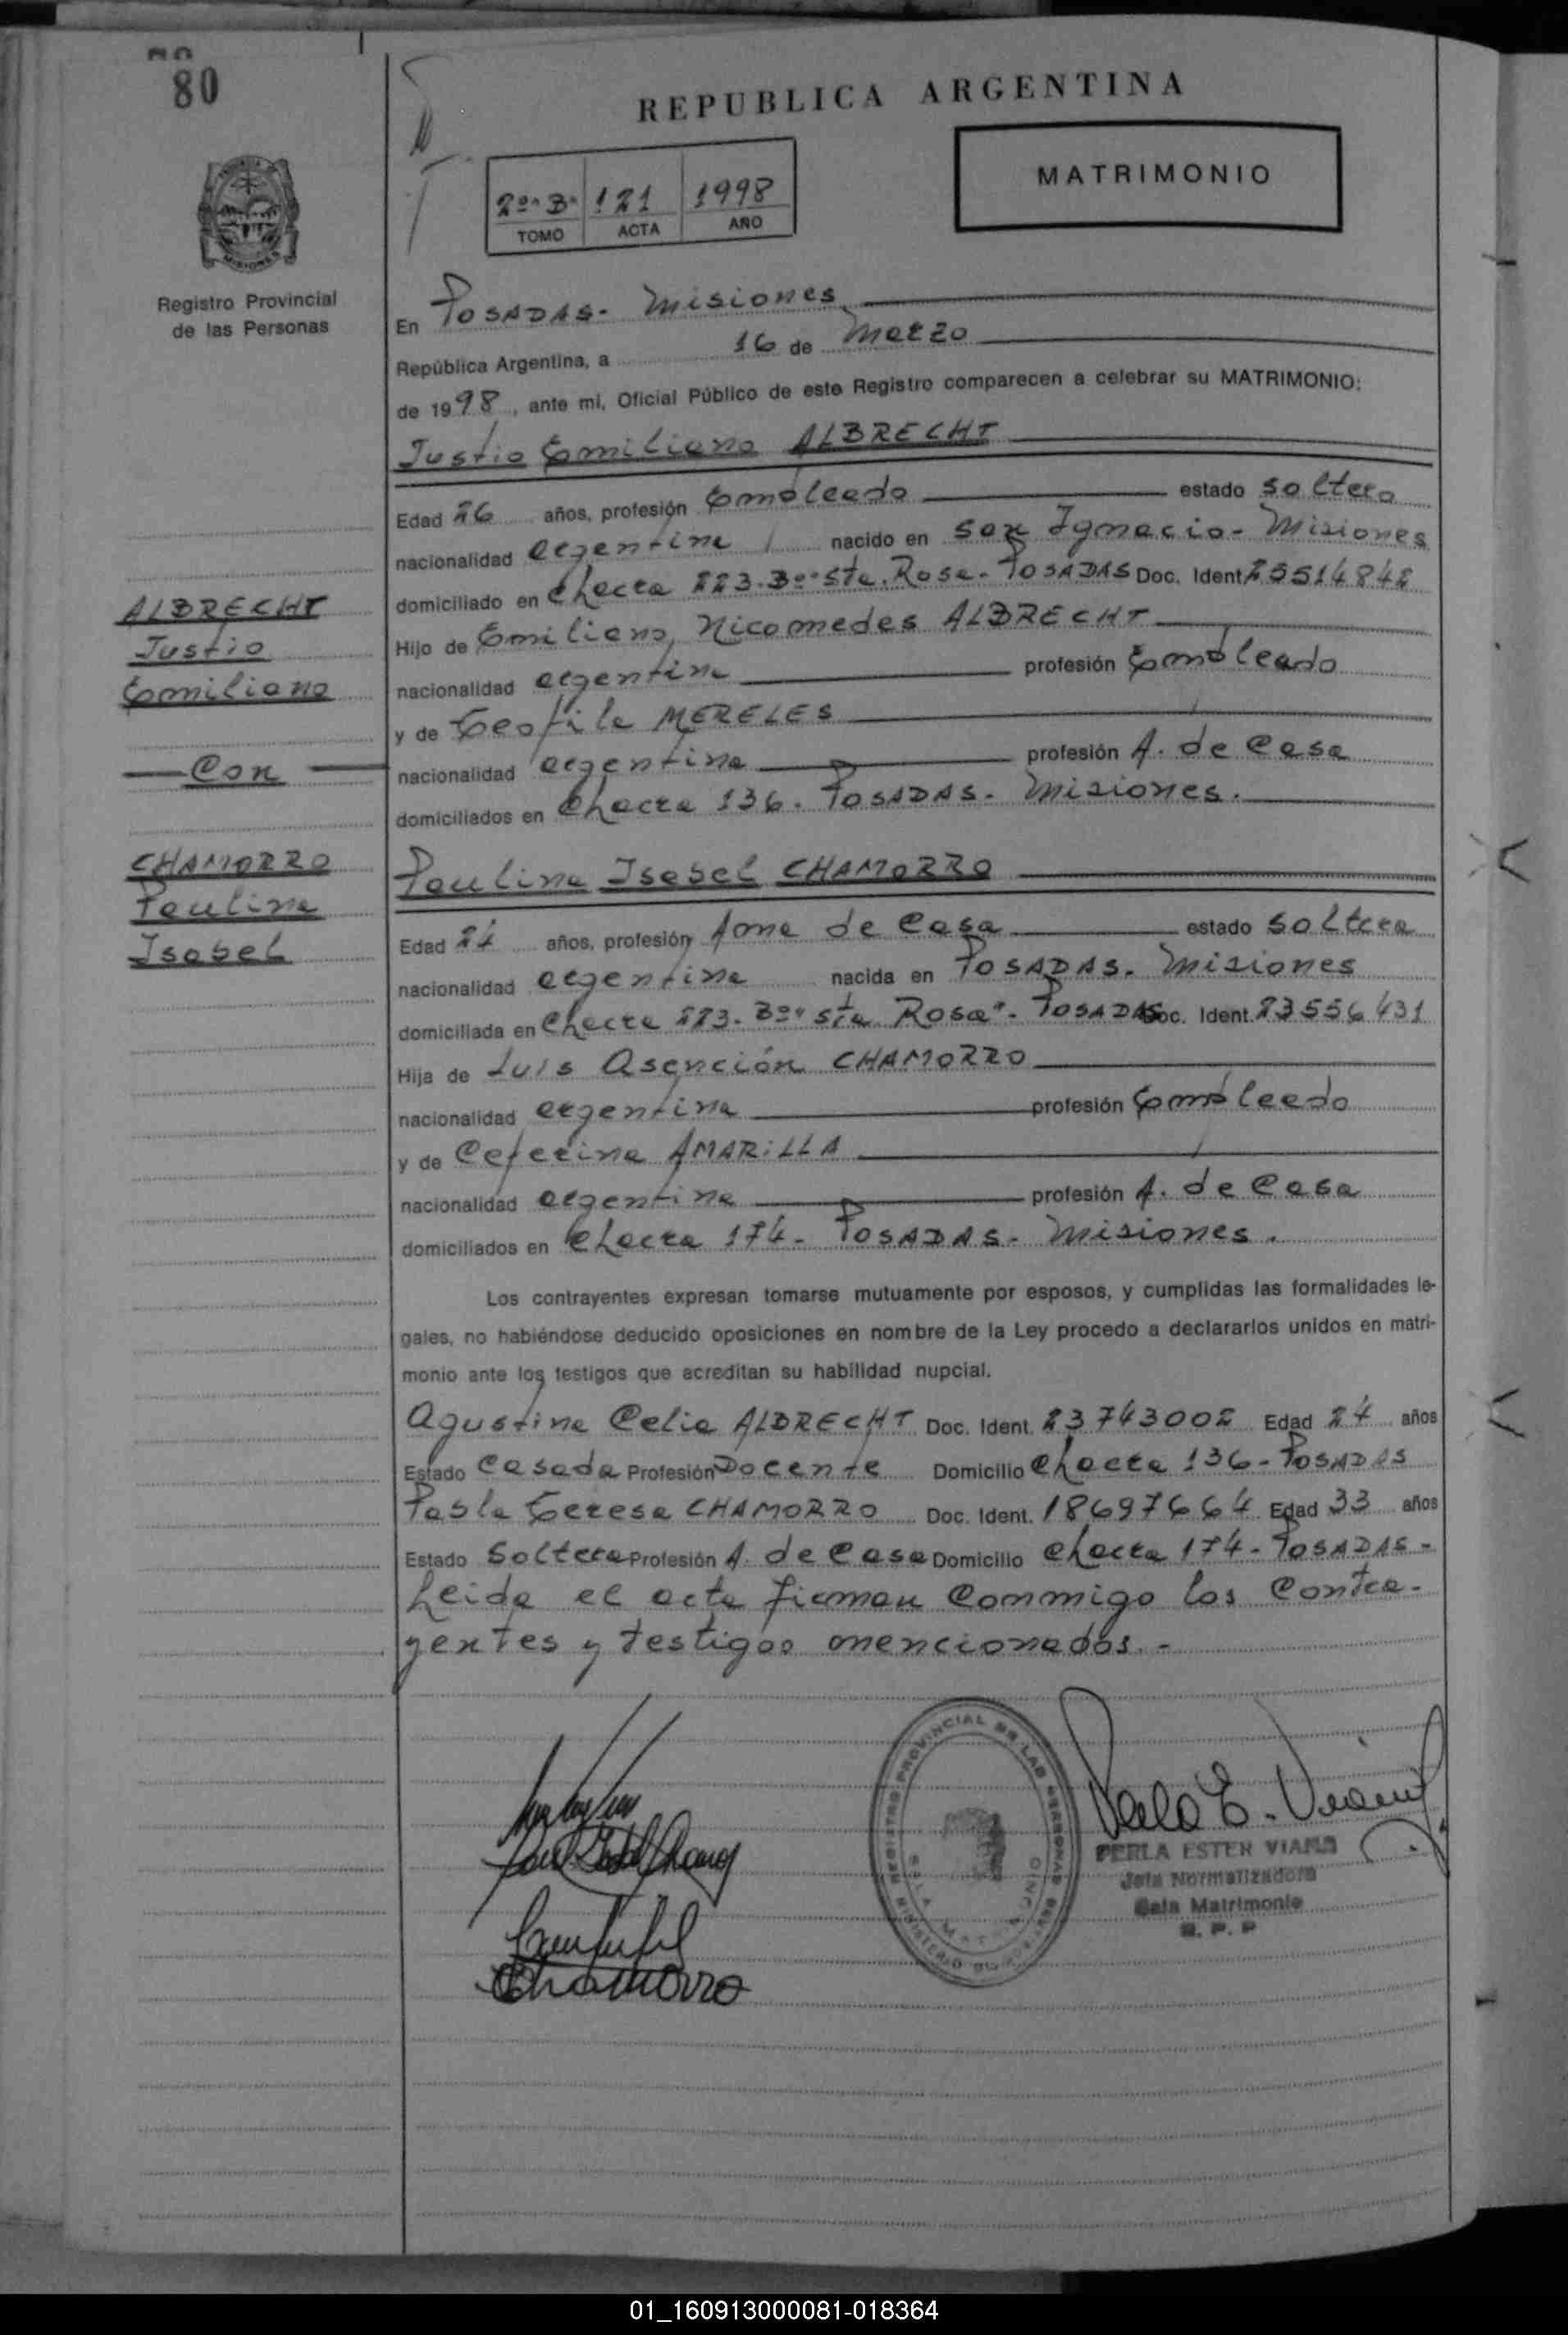 80
REPUBLICA ARGENTINA
MATRIMONIO
2º "B" 121 1998
TOMO ACTA AÑO
MISIONES
Registro Provincial
de las Personas
En POSADAS - Misiones
República Argentina, a 16 de Marzo
de 1998, ante mi, Oficial Público de este Registro comparecen a celebrar su MATRIMONIO:
Justio Emiliano ALBRECHT
Edad 26 años, profesión Empleado estado soltero
nacionalidad argentina nacido en San Ignacio - Misiones
domiciliado en Chacra 223. Bº Sta. Rosa - POSADAS Doc. Ident. 25514842
Hijo de Emiliano Nicomedes ALBRECHT
nacionalidad argentina profesión Empleado
y de Teofila MERELES
nacionalidad argentina profesión A. de Casa
domiciliados en Chacra 136 - POSADAS - Misiones.
ALBRECHT
Justio
Emiliano
Con
CHAMORRO
Paulina
Isabel
Paulina Isabel CHAMORRO
Edad 24 años, profesión Ama de Casa estado soltera
nacionalidad argentina nacida en POSADAS - Misiones
domiciliada en Chacra 223 - Bº "Sta Rosa" - POSADAS Doc. Ident. 23556431
Hija de Luis Asención CHAMORRO
nacionalidad argentina profesión Empleado
y de Ceferina AMARILLA
nacionalidad argentina profesión A. de Casa
domiciliados en Chacra 174 - POSADAS - Misiones.
Los contrayentes expresan tomarse mutuamente por esposos, y cumplidas las formalidades le-
gales, no habiéndose deducido oposiciones en nombre de la Ley procedo a declararlos unidos en matri-
monio ante los testigos que acreditan su habilidad nupcial.
Agustina Celia ALBRECHT Doc. Ident. 23743002 Edad 24 años
Estado Casada Profesión Docente Domicilio Chacra 136 - POSADAS
Pabla Teresa CHAMORRO Doc. Ident. 18697664 Edad 33 años
Estado Soltera Profesión A. de Casa Domicilio Chacra 174 - POSADAS -
Leida el acta firman conmigo los contra-
yentes y testigos mencionados. -
REGISTRO PROVINCIAL DE LAS PERSONAS
Chamorro
PERLA ESTER VIANA
Jefa Normalizadora
Sala Matrimonio
R. P. P
01_160913000081-018364